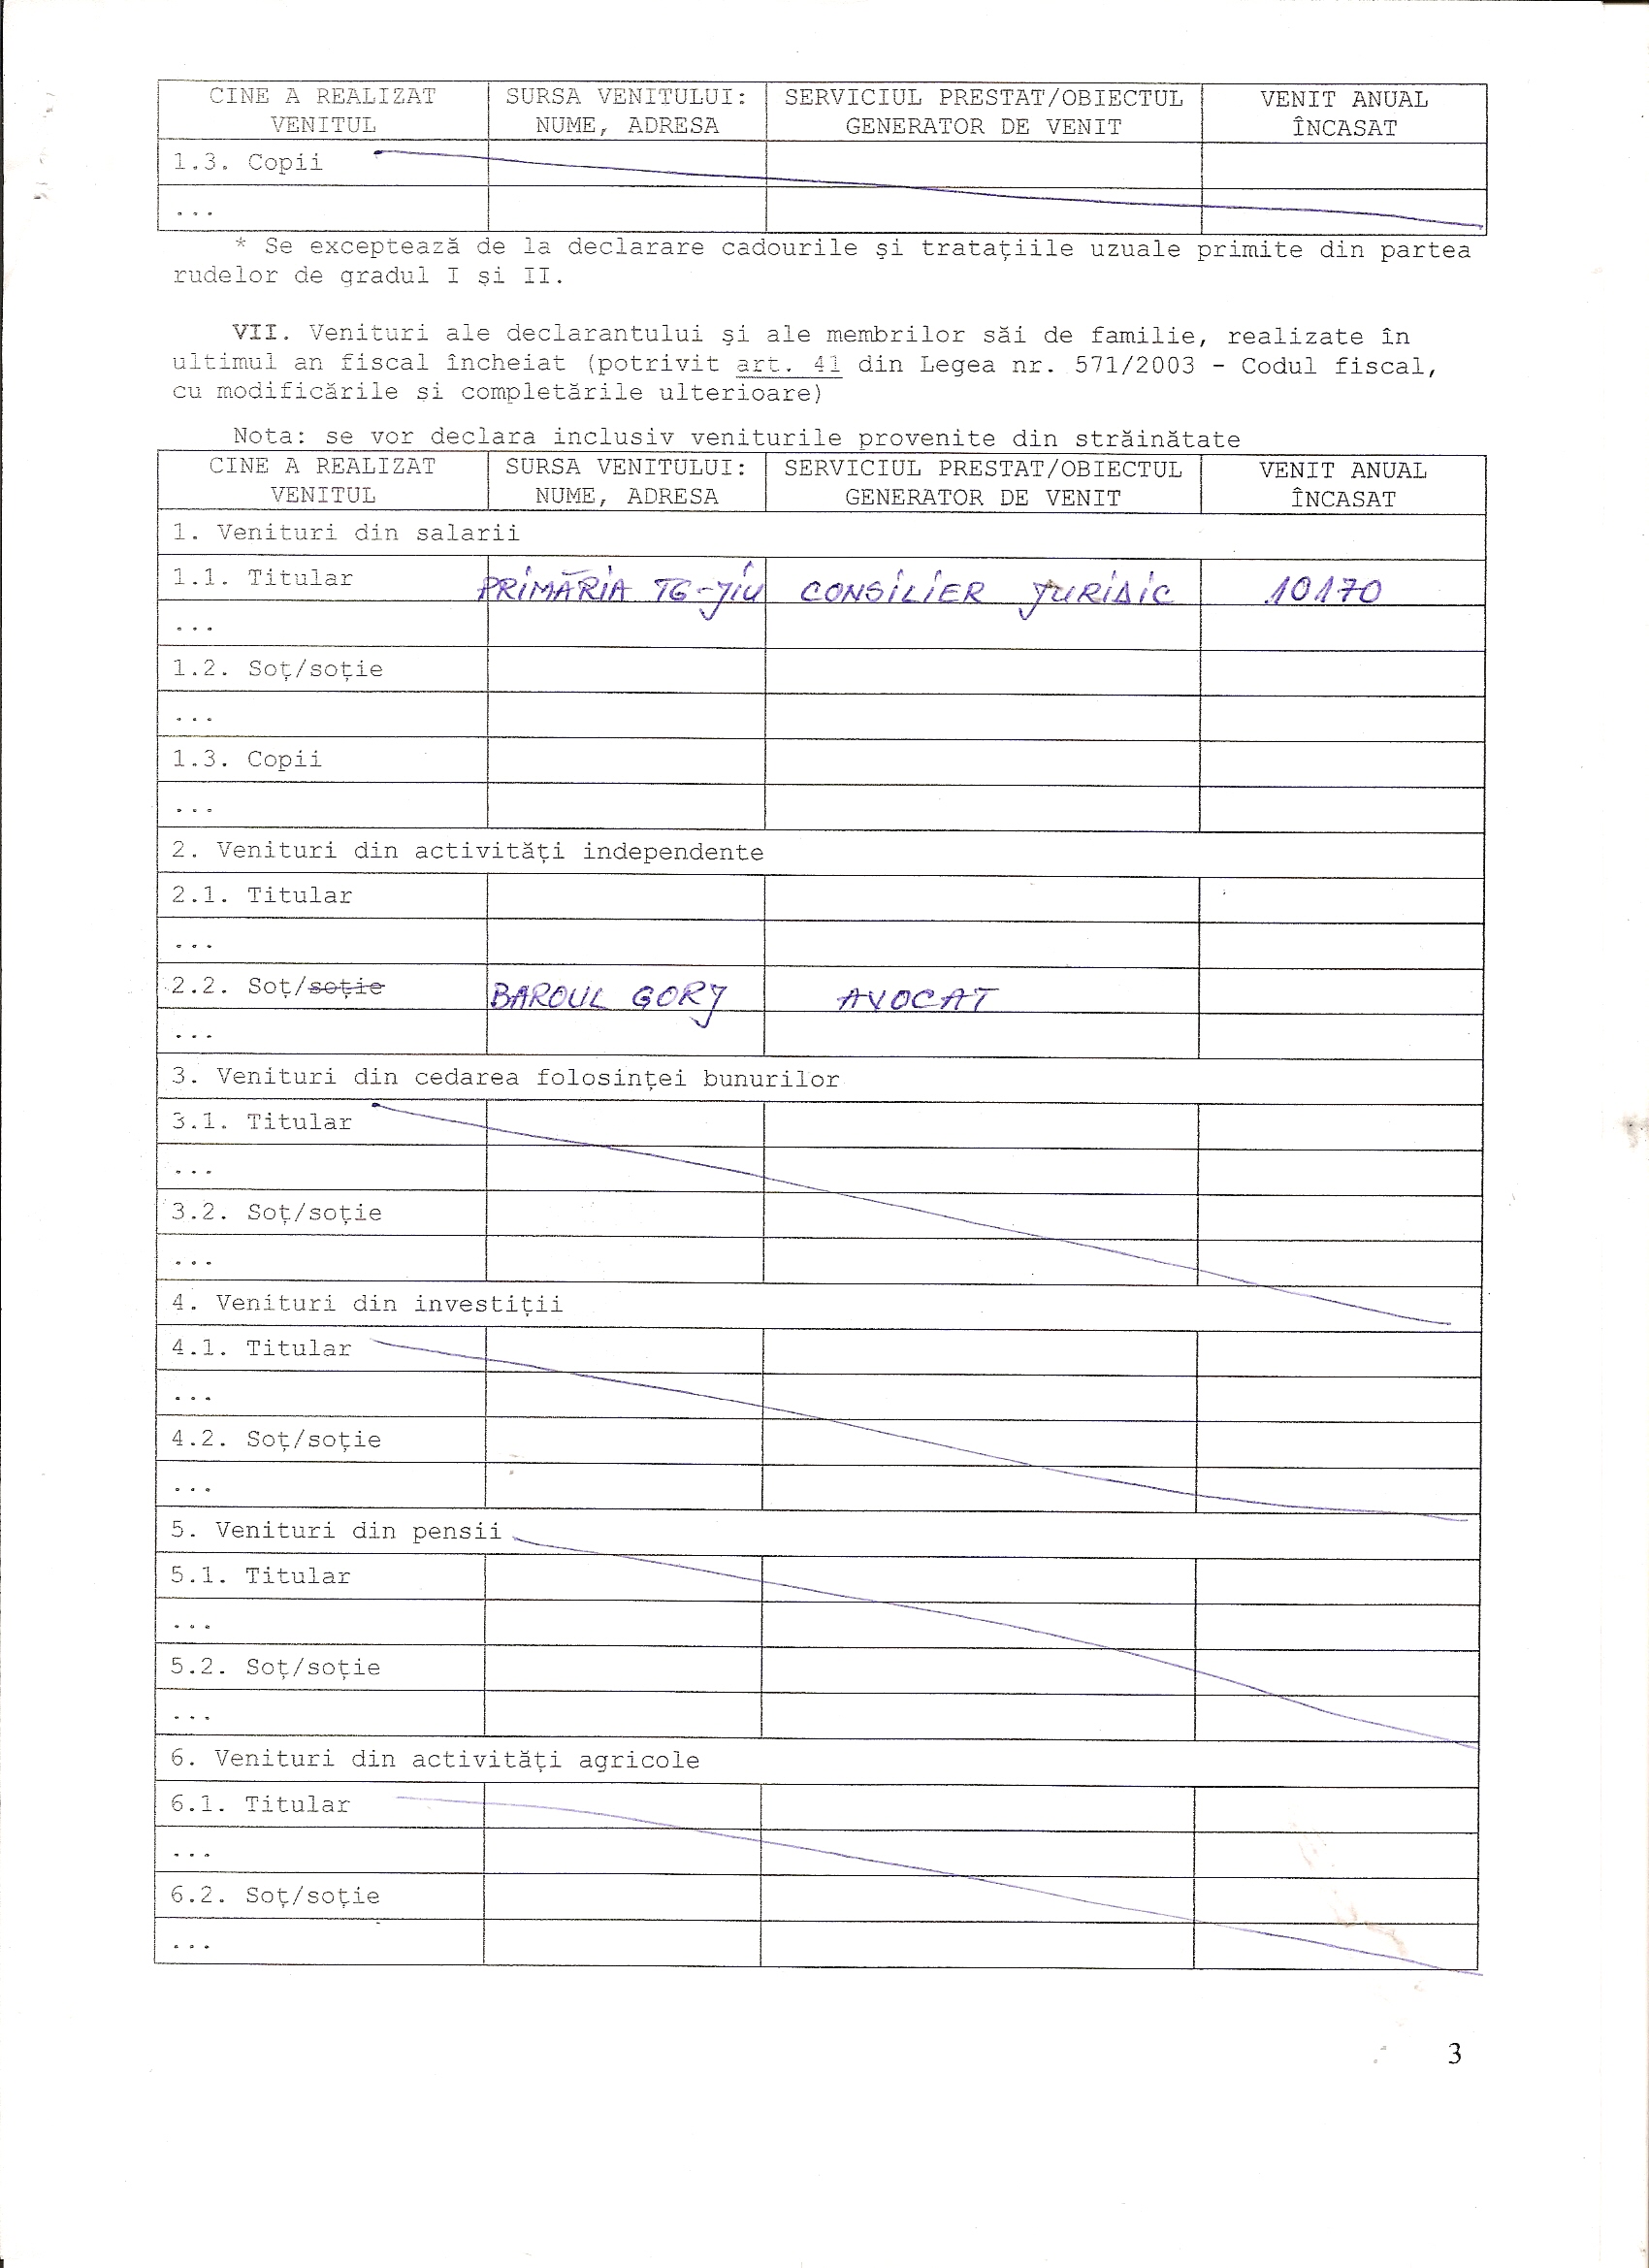 CINE A REALIZAT VENITUL SURSA VENITULUI: NUME, ADRESA SERVICIUL PRESTAT/OBIECTUL GENERATOR DE VENIT VENIT ANUAL ÎNCASAT
1.3. Copii
...
* Se exceptează de la declarare cadourile și tratațiile uzuale primite din partea
rudelor de gradul I și II.
VII. Venituri ale declarantului și ale membrilor săi de familie, realizate în
ultimul an fiscal încheiat (potrivit art. 41 din Legea nr. 571/2003 - Codul fiscal,
cu modificările si completările ulterioare)
Nota: se vor declara inclusiv veniturile provenite din străinătate
CINE A REALIZAT VENITUL SURSA VENITULUI: NUME, ADRESA SERVICIUL PRESTAT/OBIECTUL GENERATOR DE VENIT VENIT ANUAL ÎNCASAT
1. Venituri din salarii
1.1. Titular PRIMĂRIA TG-JIU CONSILIER JURIDIC 10170
...
1.2. Soț/soție
...
1.3. Copii
...
2. Venituri din activități independente
2.1. Titular
...
2.2. Soț/soție BAROUL GORJ AVOCAT
...
3. Venituri din cedarea folosinței bunurilor
3.1. Titular
...
3.2. Soț/soție
...
4. Venituri din investiții
4.1. Titular
...
4.2. Soț/soție
...
5. Venituri din pensii
5.1. Titular
...
5.2. Soț/soție
...
6. Venituri din activități agricole
6.1. Titular
...
6.2. Soț/soție
...
3